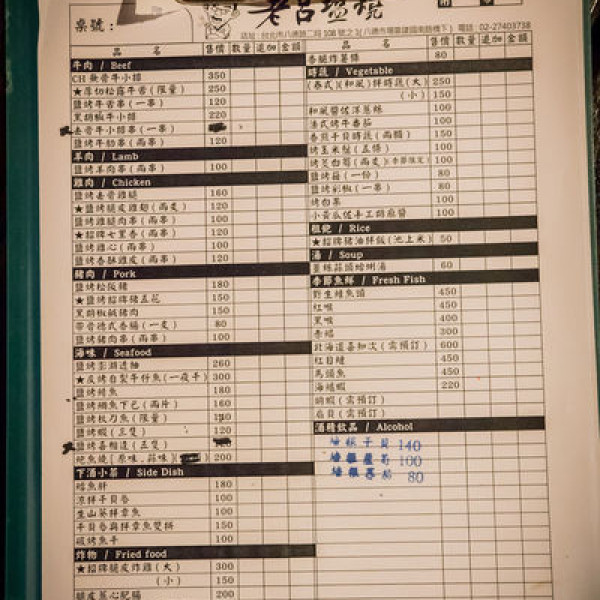 桌號：
老呂塩梘
電話：02-27403738
品 名 售價 數量 追加 金額
牛肉 / Beef
CH 無骨牛小排 350
★厚切松露牛舌(限量) 250
鹽烤牛舌串(一串) 120
黑胡椒牛小排 220
去骨牛小排串(一串)
鹽烤牛肋串(兩串) 120
羊肉 / Lamb
鹽烤羊肉串(兩串) 100
雞肉 / Chicken
鹽烤去骨雞腿 160
★鹽烤脆皮雞翅(兩支) 120
鹽烤雞腿肉串(兩串) 100
★招牌七里香(兩串) 120
鹽烤雞心(兩串) 100
鹽烤香酥雞皮(兩串) 120
豬肉 / Pork
鹽烤松阪豬 180
★鹽烤招牌豬五花 150
黑胡椒鹹豬肉 150
帶骨德式香腸(一支) 80
鹽烤豬肉串(兩串) 100
海味 / Seafood
鹽烤澎湖透抽 260
★炙烤自製午仔魚(一夜干) 300
鹽烤鯖魚 180
鹽烤鯛魚下巴(兩片) 160
鹽烤秋刀魚(限量)
鹽烤蝦(三隻) 120
鹽烤喜相逢(五隻)
魠魚燒[原味、蒜味] 200
下酒小菜 / Side Dish
鱈魚肝 180
涼拌干貝唇 100
生山葵拌章魚 100
干貝唇與拌章魚雙拼 150
碳烤魚干 100
炸物 / Fried food
★招牌脆皮炸雞(大) 300
(小) 150
脆皮蔥心肥腸 200
品 名 售價 數量 追加 金額
香脆炸薯條 80
時蔬 / Vegetable
(泰式)(和風)拌時蔬(大) 250
(小) 150
和風醬佐洋蔥絲 100
法式烤牛番茄 100
香煎干貝時蔬(兩顆) 150
烤玉米筍(五條) 100
烤茭白筍(兩支)(季節限定) 100
鹽烤菇(一份) 80
鹽烤彩椒(一串) 80
烤白果 100
小黃瓜佐手工胡麻醬 100
粗飽 / Rice
★招牌豬油拌飯(池上米) 50
湯 / Soup
薑絲蒜頭蛤蜊湯 60
季節魚鮮 / Fresh Fish
野生鮭魚頭 450
紅喉 450
黑喉 400
赤鯮 300
北海道喜知次(需預訂) 600
紅目鰱 450
馬頭魚 450
海螯蝦 220
明蝦(需預訂)
扇貝(需預訂)
酒精飲品 / Alcohol
塩梘干貝 140
塩梘蘆筍 100
塩梘茗茄 80